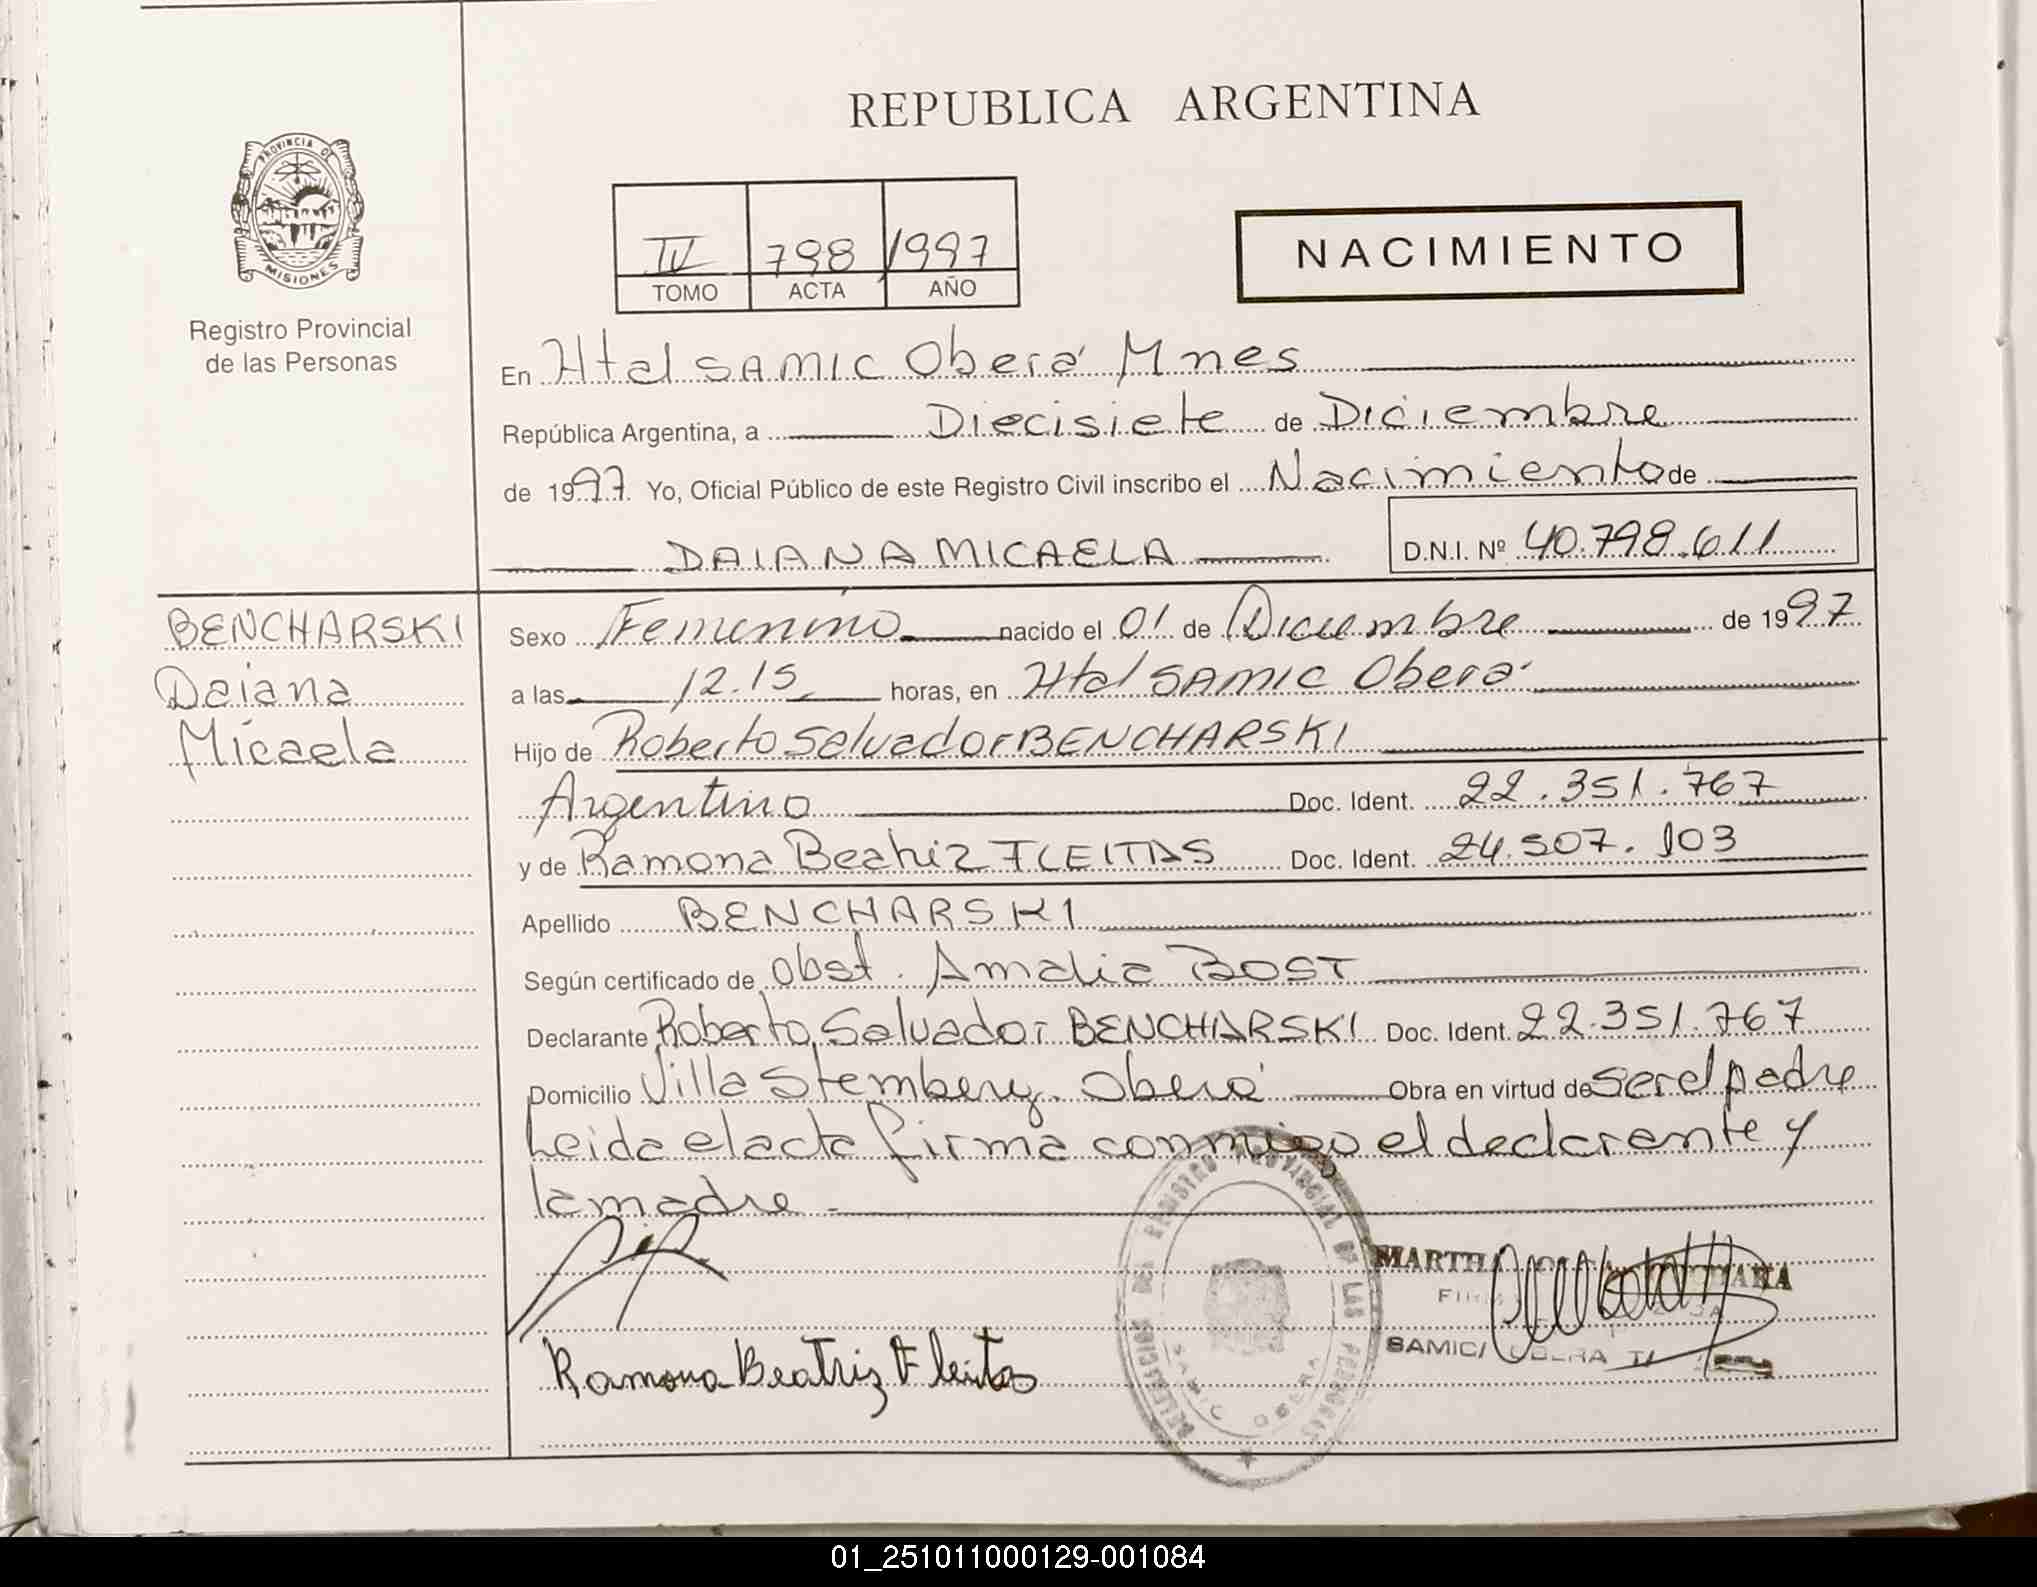 REPUBLICA ARGENTINA
PROVINCIA DE
MISIONES
Registro Provincial
de las Personas
IV 798 1997
TOMO ACTA AÑO
NACIMIENTO
En Htal SAMIC Oberá Mnes
República Argentina, a Diecisiete de Diciembre
de 1997. Yo, Oficial Público de este Registro Civil inscribo el Nacimiento de
DAIANA MICAELA D.N.I. Nº 40.798.611
BENCHARSKI
Daiana
Micaela
Sexo Femenino nacido el 01 de Diciembre de 1997
a las 12.15 horas, en Htal SAMIC Oberá
Hijo de Roberto Salvador BENCHARSKI
Argentino Doc. Ident. 22.351.767
y de Ramona Beatriz FLEITAS Doc. Ident. 24.507.103
Apellido BENCHARSKI
Según certificado de Obst. Amalia BOST
Declarante Roberto Salvador BENCHARSKI Doc. Ident. 22.351.767
Domicilio Villa Stemberg. Oberá Obra en virtud de ser el padre
Leida el acta firma conmigo el declarante y
la madre
DELEGACION DEL REGISTRO PROVINCIAL DE LAS PERSONAS
SAMIC OBERA
MARTH
SAMIC/ OBERA
Ramona Beatriz Fleitas
01_251011000129-001084